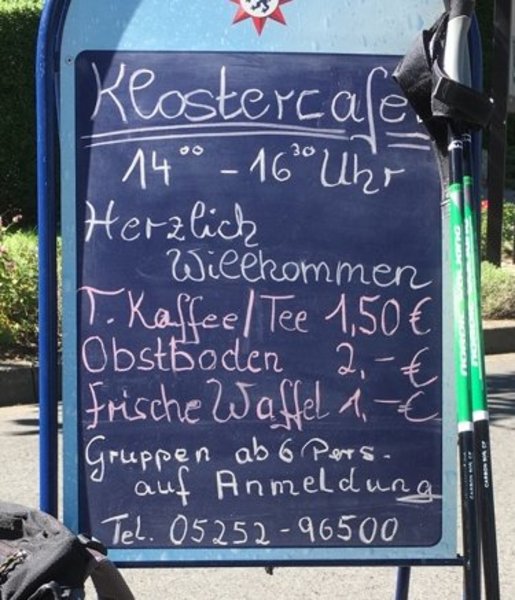 Klostercafe
14⁰⁰ - 16³⁰ Uhr
Herzlich
Willkommen
T. Kaffee/Tee 1,50 €
Obstboden 2,- €
frische Waffel 1,- €
Gruppen ab 6 Pers.
auf Anmeldung
Tel. 05252-96500